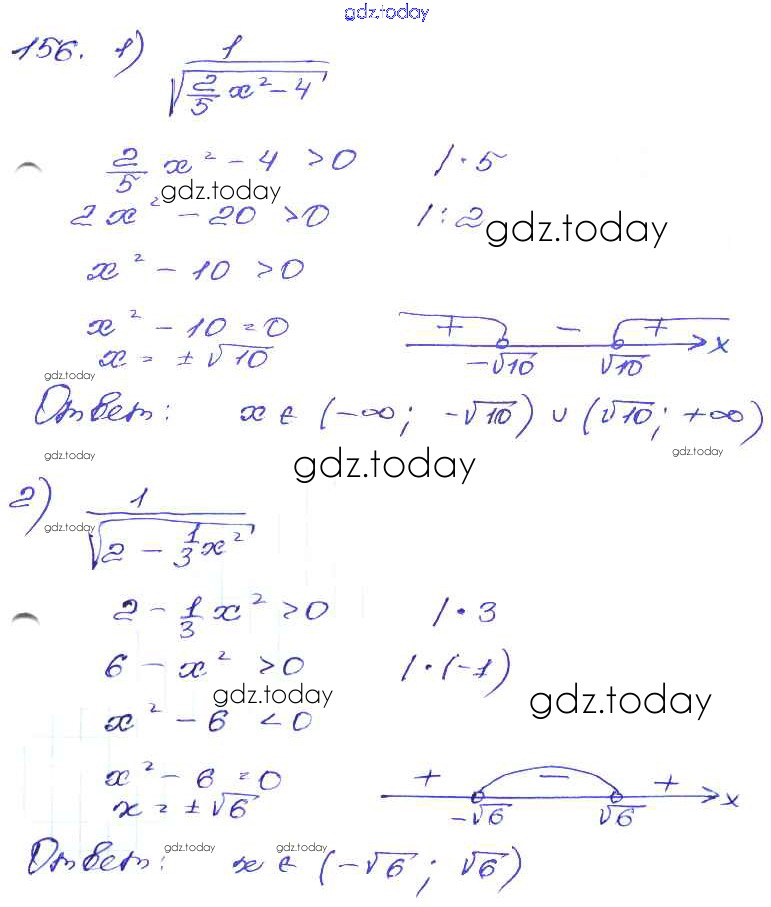 gdz.today
156. 1) 1/√(2/5 x² - 4)
2/5 x² - 4 > 0 | · 5
gdz.today
2x² - 20 > 0 | : 2
gdz.today
x² - 10 > 0
x² - 10 = 0
+ - +
x = ± √10
-√10 √10 x
gdz.today
Ответ: x ∈ (-∞; -√10) ∪ (√10; +∞)
gdz.today
gdz.today
gdz.today
2) 1/√(2 - 1/3 x²)
gdz.today
2 - 1/3 x² > 0 | · 3
6 - x² > 0 | · (-1)
gdz.today
gdz.today
x² - 6 < 0
x² - 6 = 0
+ - +
x = ± √6
-√6 √6 x
Ответ: x ∈ (-√6; √6)
gdz.today
gdz.today